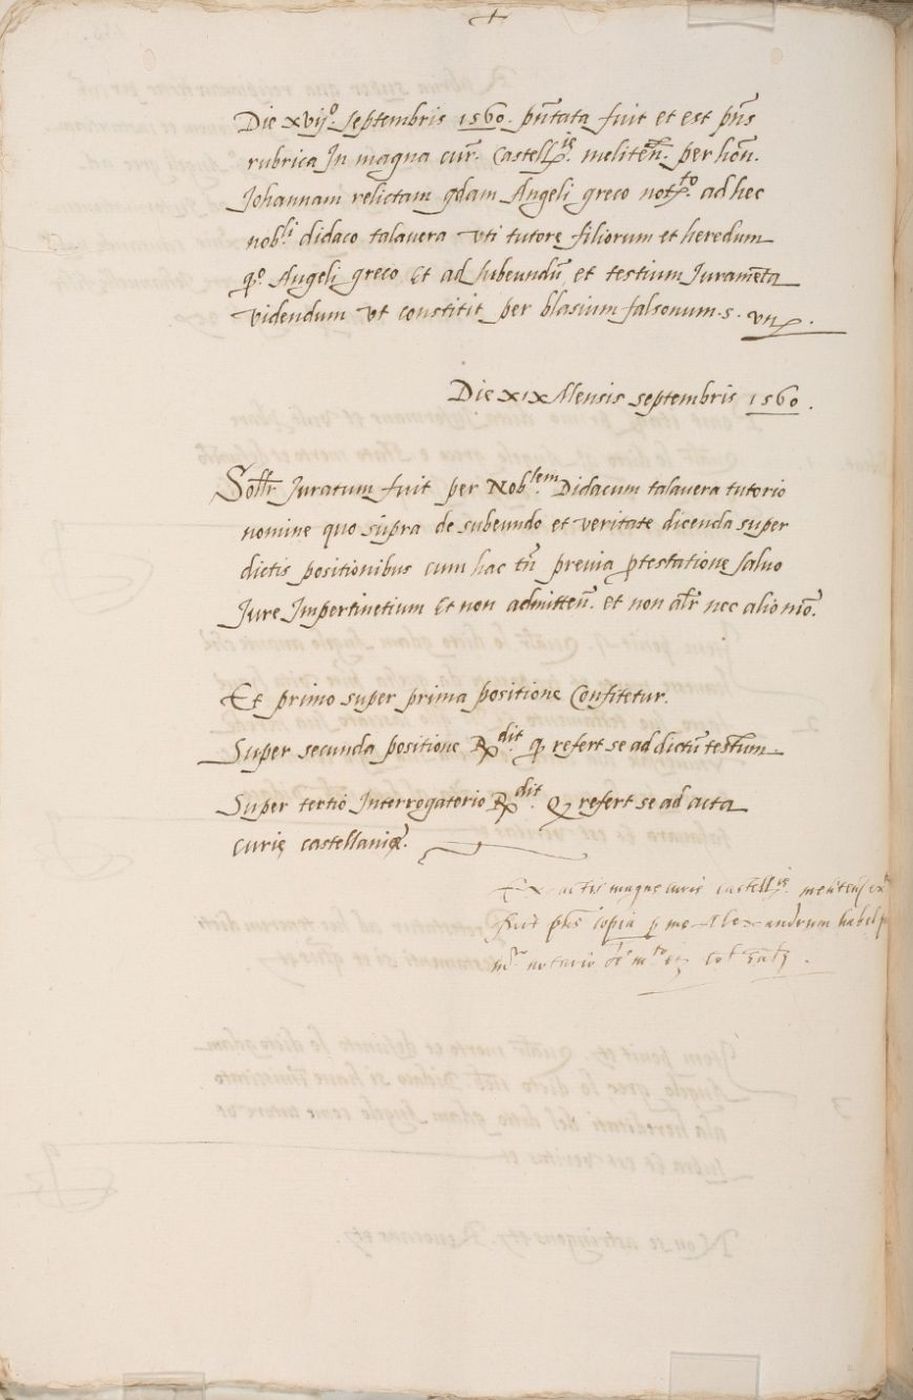 +
Die xvij.º Septembris 1560. pñtata fuit et est pñs
rubrica In magna cur̃. Castell.ie meliteñ. per hoñ.
Johannam relictam qdam Angeli greco not.to ad hec
nob.li didaco talavera uti tutore filiorum et heredum
q.º Angeli greco Et ad subeundũ et testium Juramẽta
videndum ut constitit per blasium falsonum. s.
Die xix Mensis septembris 1560.
Sollr̃ Juratum fuit per Nob.lem Didacum talavera tutorio
nomine quo supra de subeundo et veritate dicenda super
dictis positionibus cum hac tñ previa ptestatione salvo
Jure Impertinetium Et non admitteñ. et non alr̃ nec alio mõ.
Et primo super prima positione Confitetur.
Super secunda positione Rp.dit q refert se ad dictũ testium
Super tertio Interrogatorio Rp.dit. Q refert se ad acta
curię castellanię.
Ex actis magne curie castell.ie meliteñ
pñs copia p me Alexandrum
notario